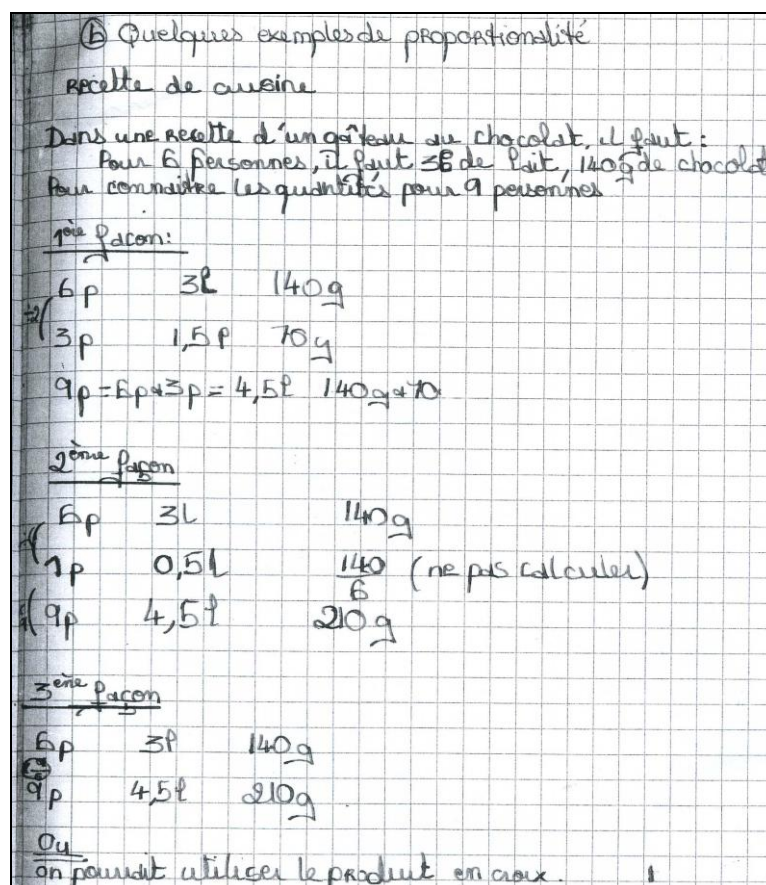 b Quelques exemples de proportionalité
Recette de cuisine
Dans une recette d'un gâteau au chocolat, il faut :
Pour 6 personnes, il faut 3l de lait, 140g de chocolat
Pour connaitre les quantités pour 9 personnes
1ère façon:
6p 3l 140g
÷2
3p 1,5l 70g
9p = 6p + 3p = 4,5l 140g + 70
2ème façon
6p 3L 140g
1p 0,5L 140/6 (ne pas calculer)
9p 4,5l 210g
3ème façon
6p 3l 140g
9p 4,5l 210g
Ou
on pourrait utiliser le produit en croix.